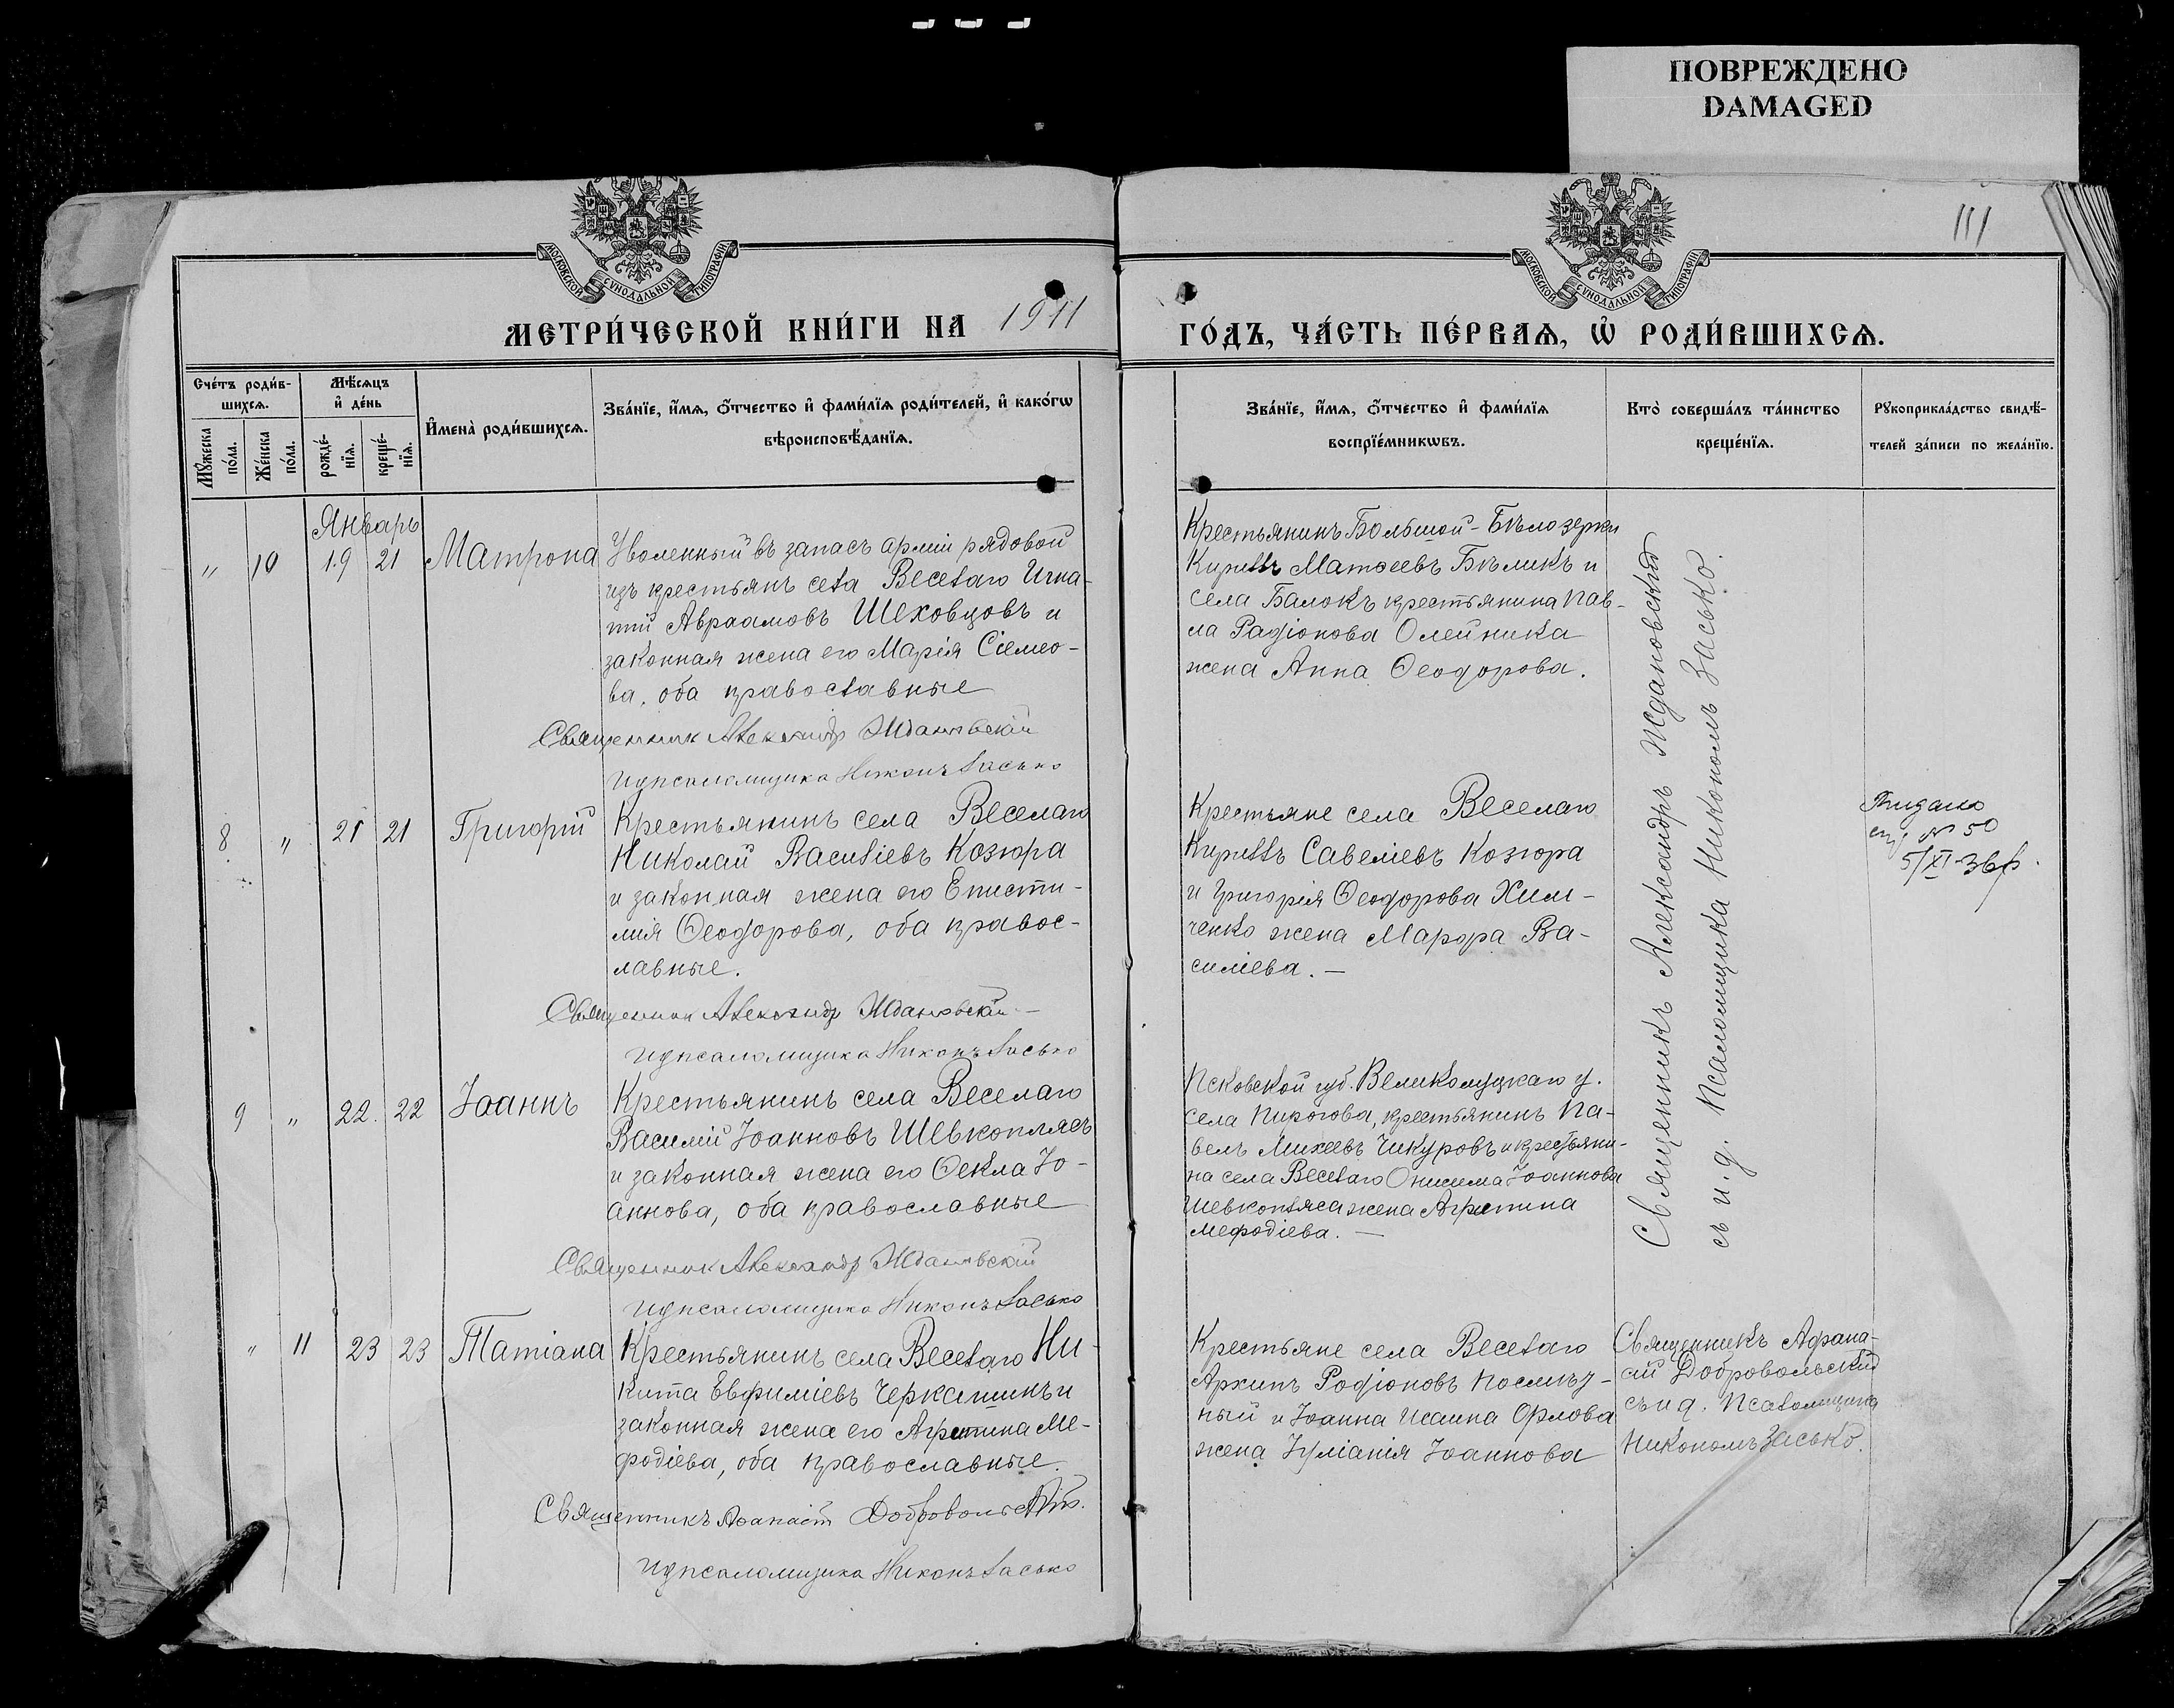 ПОВРЕЖДЕНО
DAMAGED
111
МОСКОВСКОЙ СѴНОДАЛЬНОЙ ТИПОГРАФІИ
МОСКОВСКОЙ СѴНОДАЛЬНОЙ ТИПОГРАФІИ
МЕТРИ́ЧЕСКОЙ КНИ́ГИ НА 1911
ГО́ДЪ, ЧА́СТЬ ПЕ́РВАѦ, Ѽ РОДИ́ВШИХСѦ.
Сче́тъ роди́в-
шихсѧ.
Мꙋ́жеска
по́ла.
Же́нска
по́ла.
Мѣ́сѧцъ
и҆ де́нь
рожде́-
нїѧ.
креще́-
нїѧ.
И҆мена̀ роди́вшихсѧ.
Зва́нїе, и҆́мѧ, ѻ҆́тчество и҆ фами́лїѧ роди́телей, и҆ како́гѡ
вѣроисповѣ́данїѧ.
Зва́нїе, и҆́мѧ, ѻ҆́тчество и҆ фами́лїѧ
воспрїе́мникѡвъ.
Кто̀ соверша́лъ та́инство
креще́нїѧ.
Рꙋкоприкла́дство свидѣ́-
телей за́писи по жела́нїю.
Январь
" 10 19 21 Матрона
Уволенный въ запасъ арміи рядовой
изъ крестьянъ села Веселаго Игна-
тій Авраамовъ Шеховцовъ и
законная жена его Марія Сімео-
ва, оба православные
Священник Александр Ждановскій
И д псаломщика Никонъ Засько
Крестьянинъ Большой-Бѣлозерки
Кириллъ Матѳеевъ Бѣликъ и
села Балокъ крестьянина Пав-
ла Радіонова Олейника
жена Анна Ѳеодорова.
Священникъ Александръ Ждановскій
съ и. д. Псаломщика Никономъ Засько.
8 " 21 21 Григорій
Крестьянинъ села Веселаго
Николай Василіевъ Козюра
и законная жена его Еписти-
мія Ѳеодорова, оба правос-
лавные.
Священник Александр Ждановскій
И д псаломщика Никонъ Засько
Крестьяне села Веселаго
Кириллъ Савеліевъ Козюра
и Григорія Ѳеодорова Хим-
ченко жена Марѳра Ва-
силіева.—
Видано
№ 50
5/XI-36р.
9 " 22. 22 Іоаннъ
Крестьянинъ села Веселаго
Василій Іоанновъ Шевкоплясъ
и законная жена его Ѳекла Іо-
аннова, оба православные
Священник Александр Ждановскій
И д псаломщика Никонъ Засько
Псковской губ. Великолуцкаго у.
села Пирогова, крестьянинъ Па-
велъ Михеевъ Чикуровъ и крестьяни-
на села Веселаго Онисима Іоаннова
Шевкопляса жена Агрипина
Мефодіева.—
" 11 23 23 Татіана
Крестьянинъ села Веселаго Ни-
кита Евфиміевъ Черкашинъ и
законная жена его Агрипина Ме-
фодіева, оба православные.
Священникъ Аѳанасій Добровольскій.
И д псаломщика Никонъ Засько
Крестьяне села Веселаго
Архипъ Родіоновъ
и Іоанна Исаина Орлова
жена Іуліанія Іоаннова
Священникъ Афана-
сій Добровольскій
съ и д. Псаломщика
Никономъ Засько.